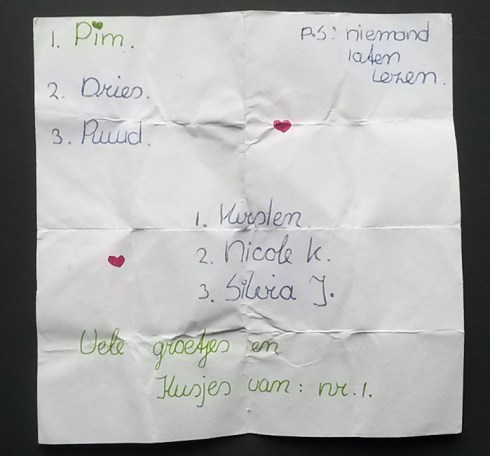 1. Pim.
P.S: niemand
laten
lezen.
2. Dries.
3. Ruud.
1. Kirsten.
2. Nicole K.
3. Silvia J.
Vele groetjes en
Kusjes van: nr. 1.